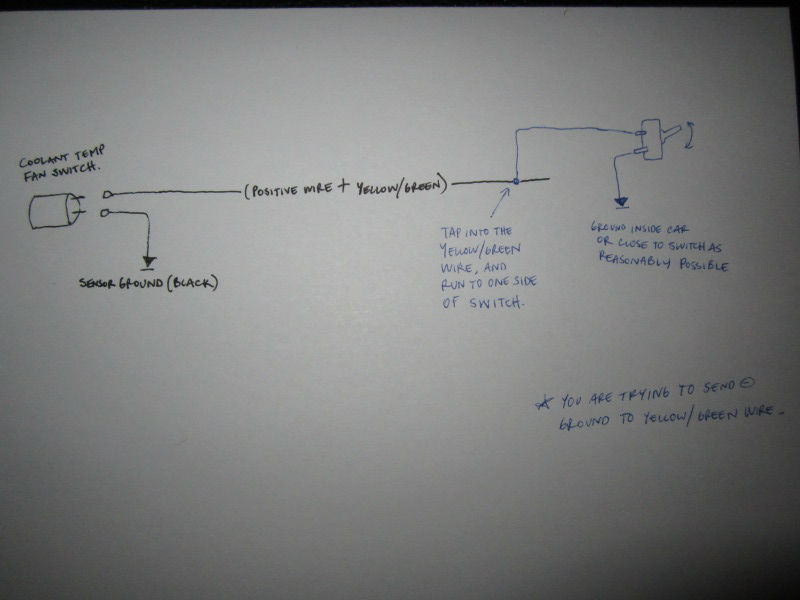 COOLANT TEMP
FAN SWITCH.
(POSITIVE WIRE + YELLOW/GREEN)
SENSOR GROUND (BLACK)
TAP INTO THE
YELLOW/GREEN
WIRE, AND
RUN TO ONE SIDE
OF SWITCH.
GROUND INSIDE CAR
OR CLOSE TO SWITCH AS
REASONABLY POSSIBLE
☆ YOU ARE TRYING TO SEND ⊖
GROUND TO YELLOW/GREEN WIRE.